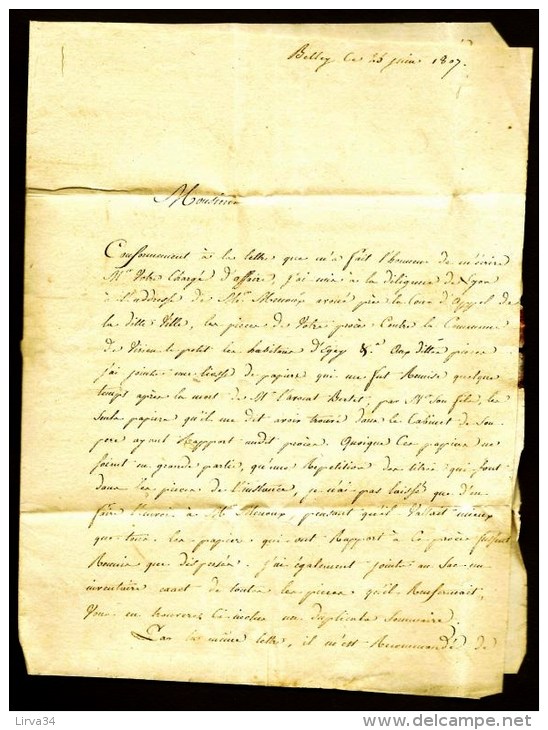 Belley le 25 juin 1807.
Monsieur
Conformement à la lettre que m'a fait l'honneur de m'écrire
Mr Votre Chargé d'affaire, j'ai mis à la diligence de Lyon
à l'addresse de Mr Menoux avoué près la Cour d'Appel de
la ditte Ville, les pieces de Votre procès Contre la Commune
de Virieu le petit les habitans d' &a. Aux dittes pieces
j'ai joint une liasse de papiers qui me fut Remise quelque
temps après la mort de Mr l'avocat Bertet; par Mr Son fils, les
Seuls papiers qu'il me dit avoir trouvé dans le Cabinet de Son
pere ayant Rapport audit procès. Quoique Ces papiers ne
Soient en grande partie, qu'une Repetition des titres qui Sont
dans les pieces de l'instance, je n'ai pas laissé que d'en
faire l'envoi à Mr Menoux, pensant qu'il Vallait mieux
que tous les papier qui ont Rapport à Ce procès fussent
Reunis que dispersés. j'ai également joint au Sac un
inventaire exact de toutes les pieces qu'il Renfermait,
Vous en trouverez Ci-inclus un duplicata Sommaire.
Par la même lettre, il m'est Recommandé de
Lirva34
delcampe.net